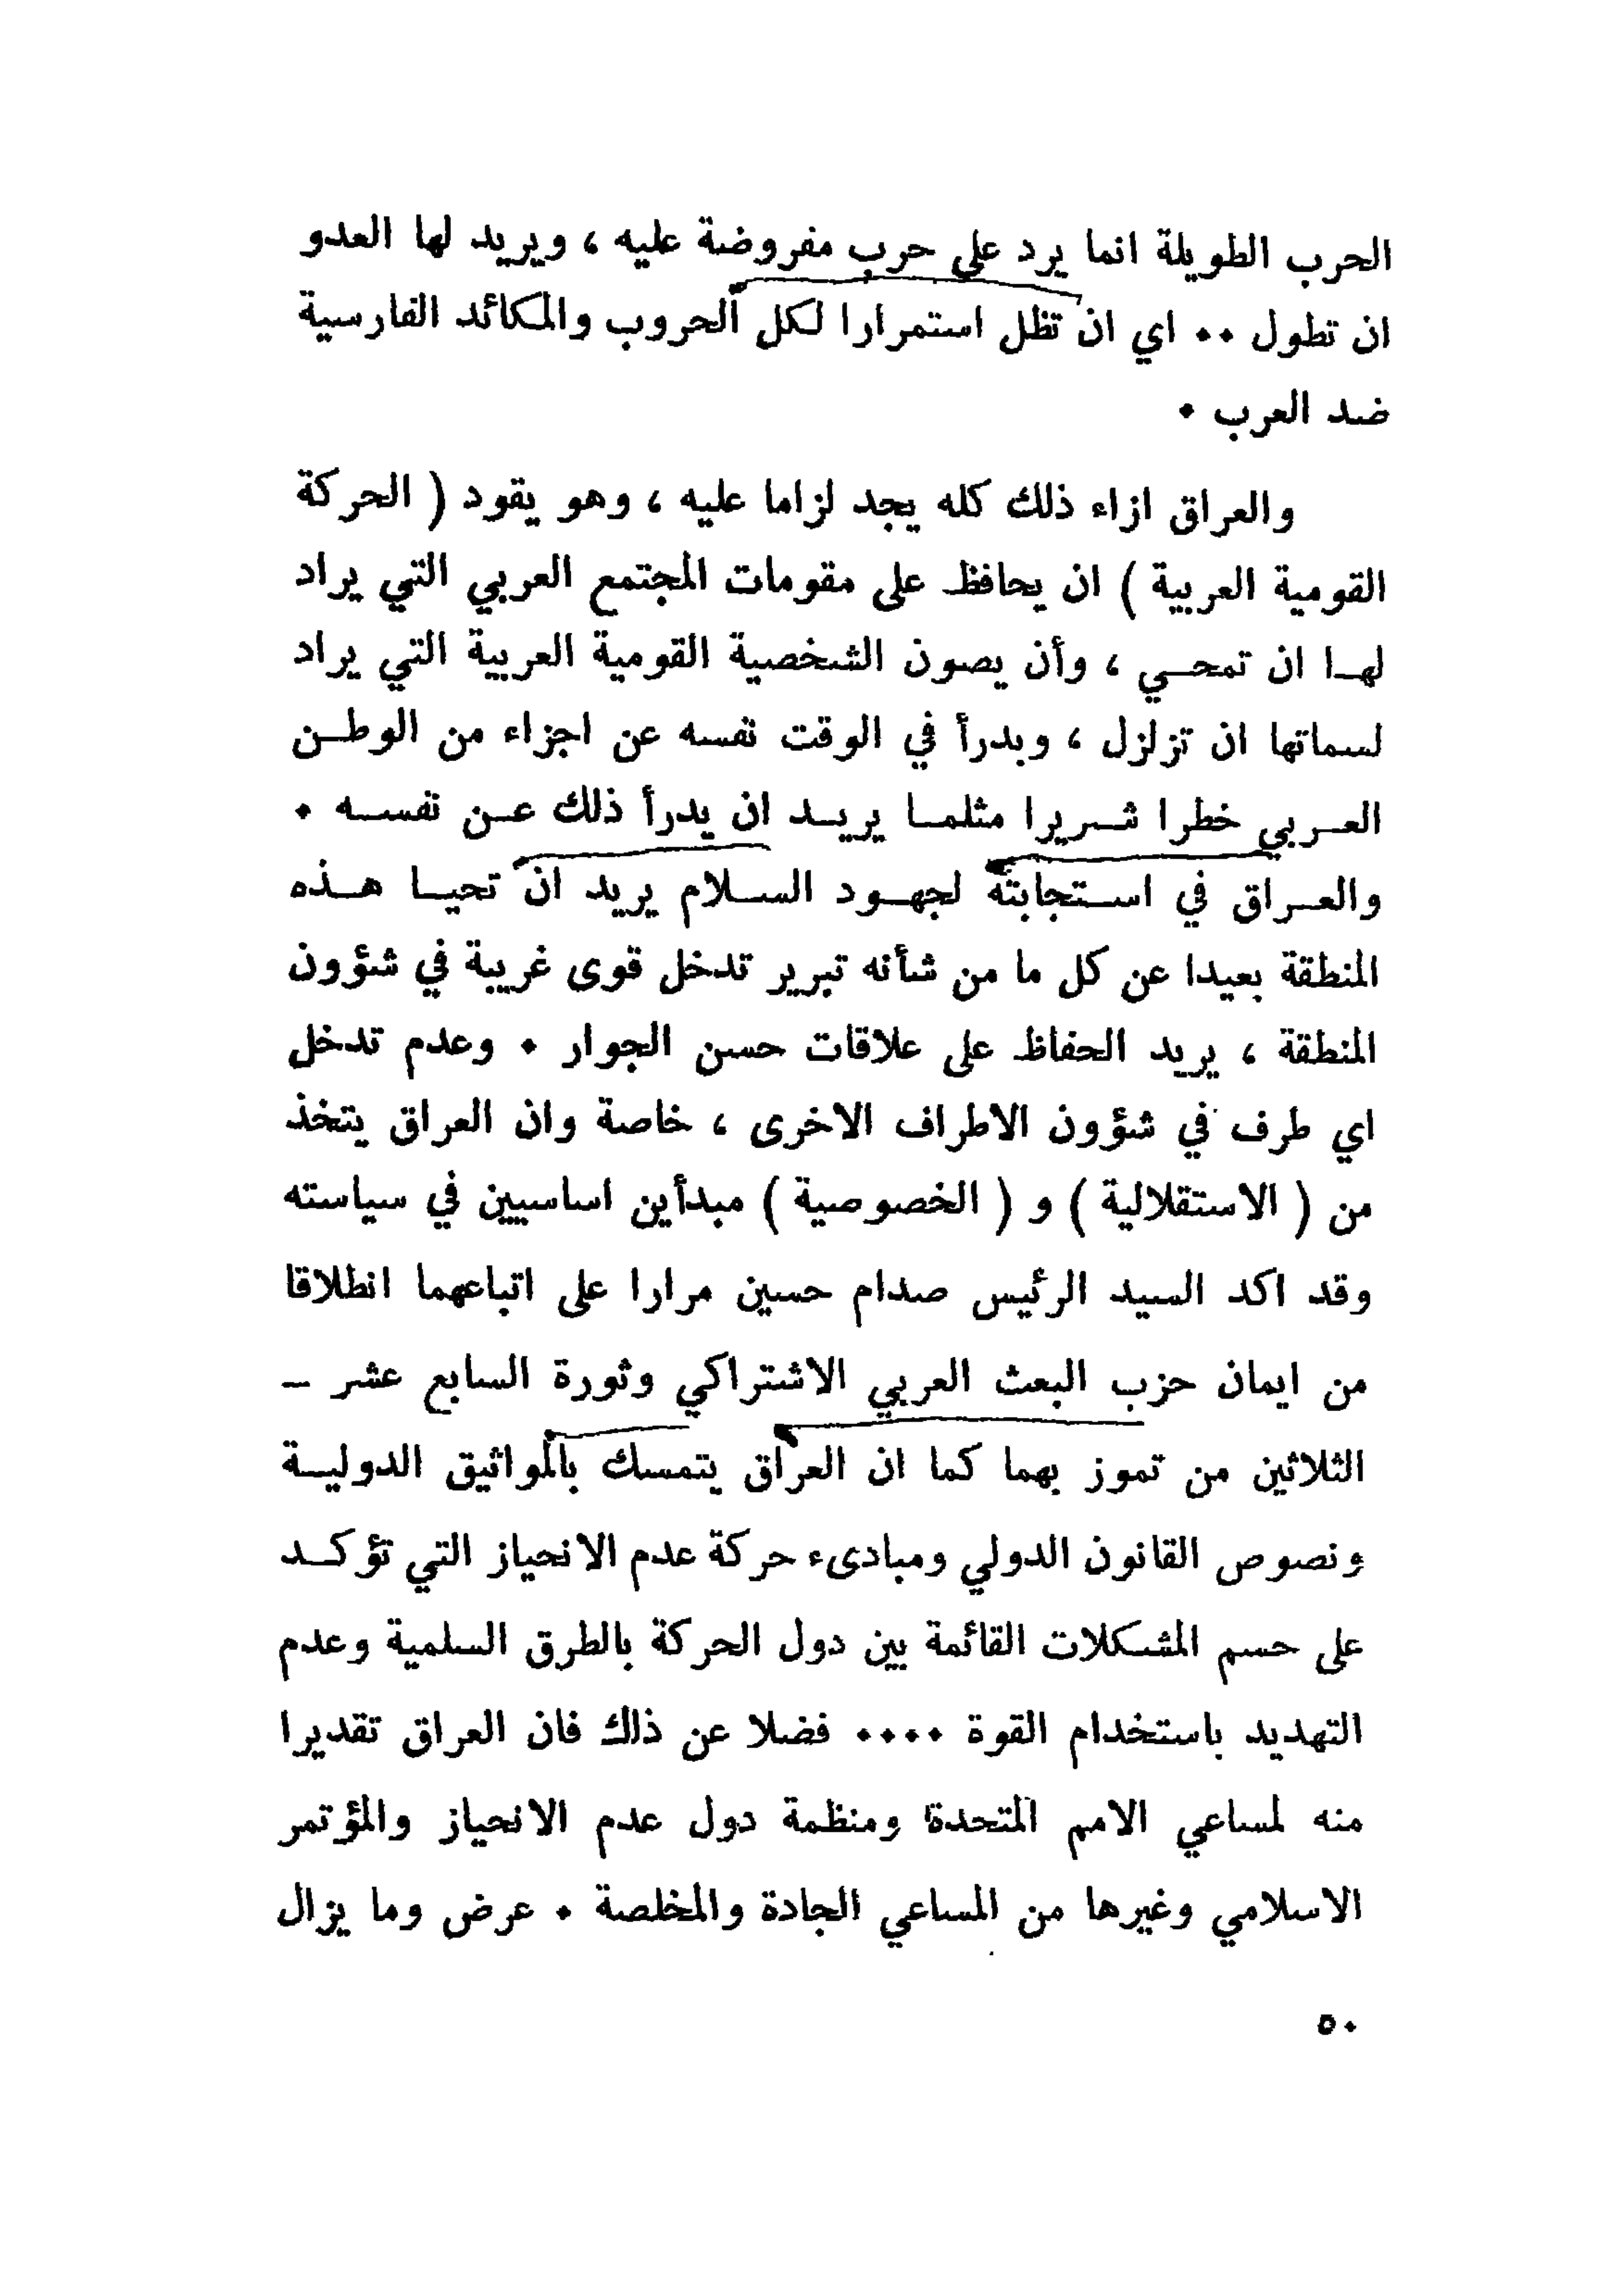 الحرب الطويلة انما يرد على حرب مفروضة عليه ، ويريد لها العدو
ان تطول ٠٠ اي ان تظل استمرارا لكل الحروب والمكائد الفارسية
ضد العرب ٠
والعراق ازاء ذلك كله يجد لزاما عليه ، وهو يقود ( الحركة
القومية العربية ) ان يحافظ على مقومات المجتمع العربي التي يراد
لهـا ان تمحـي ، وأن يصون الشخصية القومية العربية التي يراد
لسماتها ان تزلزل ، ويدرأ في الوقت نفسه عن اجزاء من الوطـن
العـربي خطرا شـريرا مثلمـا يريـد ان يدرأ ذلك عـن نفسـه ٠
والعـراق في اسـتجابته لجهـود السـلام يريد ان تحيـا هـذه
المنطقة بعيدا عن كل ما من شأنه تبرير تدخل قوى غريبة في شؤون
المنطقة ، يريد الحفاظ على علاقات حسن الجوار ٠ وعدم تدخل
اي طرف في شؤون الاطراف الاخرى ، خاصة وان العراق يتخذ
من ( الاستقلالية ) و ( الخصوصية ) مبدأين اساسيين في سياسته
وقد اكد السيد الرئيس صدام حسين مرارا على اتباعهما انطلاقا
من ايمان حزب البعث العربي الاشتراكي وثورة السابع عشر ــ
الثلاثين من تموز بهما كما ان العراق يتمسك بالمواثيق الدوليـة
ونصوص القانون الدولي ومبادىء حركة عدم الانحياز التي تؤكـد
على حسم المشكلات القائمة بين دول الحركة بالطرق السلمية وعدم
التهديد باستخدام القوة ٠٠٠٠ فضلا عن ذلك فان العراق تقديرا
منه لمساعي الامم المتحدة ومنظمة دول عدم الانحياز والمؤتمر
الاسلامي وغيرها من المساعي الجادة والمخلصة ٠ عرض وما يزال
٥٠